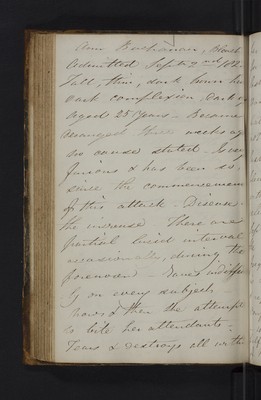 Ann Buchanan, Black
Admitted Sept 2nd 182
Tall, thin, dark brown
dark complexion, Dark
aged 25 years - Became
deranged three weeks ag
no cause stated - 
furious & has been so,
since the commencemen
of this attack. Disease
the increase There are
partial lucid interval
occasionally, during the
forenoons -
ly on every subject
now & then she attempts
to bite her attendants -
Tears & destroys all with